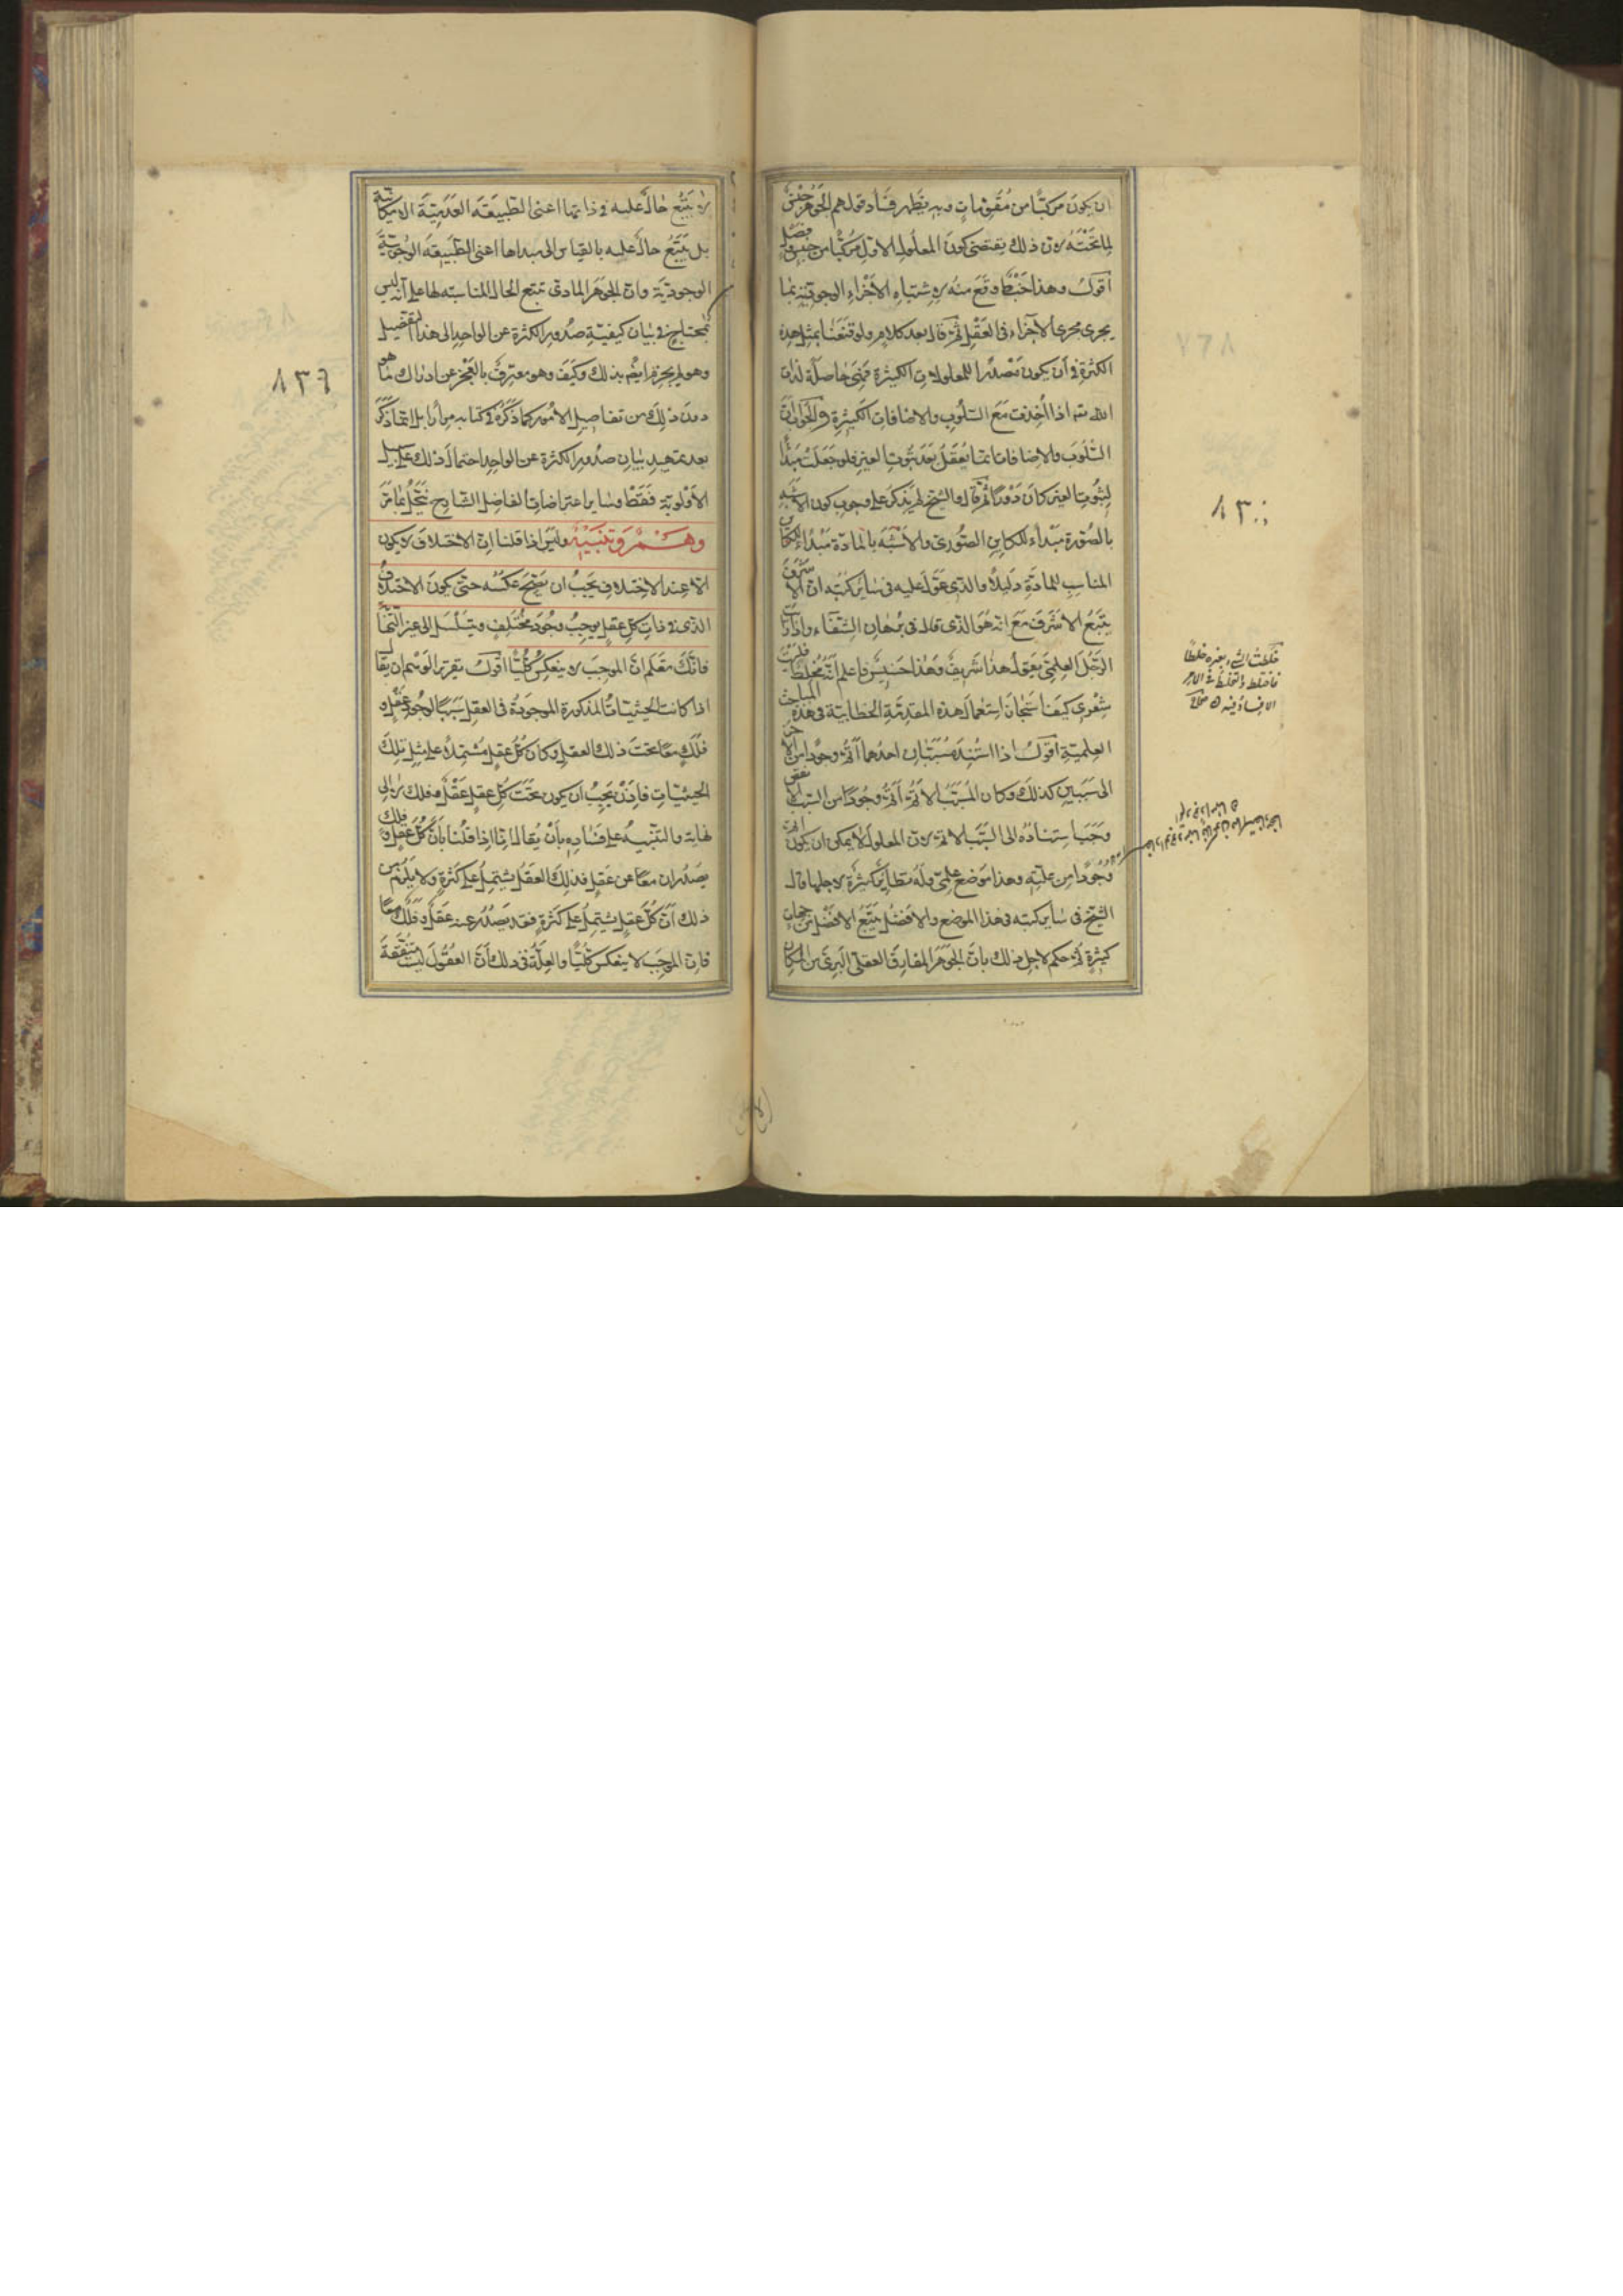 ان يكون مركبًا من مقومات وبه يظهر فساد قولهم الجوهر جنس
لما تحته لان ذلك يقتضى كون المعلول الاول مركبا من جنس وفصل
اقول وهذا خبط وقع منه لاشتباه الاجزاء الوجودية بما
يجرى مجرى الاجزاء فى العقل ثم قال بعد كلام ولو قنعنا بمثل هذه
الكثرة فى أن يكون مصدرا للمعلولات الكثيرة فهى حاصلة لذات
الله تعه اذا اخذت مع السلوب والاضافات الكثيرة والجواب ان
السلوب والاضافات انما يعقل بعد ثبوت الغير فلو جعلت مبدأ
لثبوت الغير كان دورا ثم قال والشيخ لم يذكر على وجوب كون الاشبه
بالصورة مبدأ للكاين الصورى والاشبه بالمادة مبدأ للكاين
المناسب للمادة دليلا والذى عول عليه فى ساير كتبه ان الاشرف
يتبع الاشرف مع انه هو الذى قال فى برهان الشفاء واذا رايت
الرجل العلمى يقول هذا شريف وهذا خسيس فاعلم انه تخلط فليت
شعرى كيف استجاز استعمال هذه المقدمة الخطابية فى هذه المباحث
العلمية اقول اذا استند مسببان احدهما اتم وجودا من الاخر
الى سببين كذلك وكان المسبب الاتم اتم وجودا من السبب الانقص
وجب استناده الى السبب الاتم لان المعلول لا يمكن ان يكون اتم
وجودا من علته وهذا موضع علمى وله نظاير كثيرة لاجلها قال
الشيخ فى ساير كتبه فى هذا الموضع والافضل يتبع الافضل من جهات
كثيرة ثم حكم لاجل ذلك بان الجوهر المفارق العقلى البرى من الامكان
خلطت الشىء بغيره خلطا
فاختلط والتخليط فى الامر
الافساد فيه صحاح
٨٣٠
لا يتبع حال عليه فى ذاتها اعنى الطبيعة العدمية الامكانية
بل يتبع حال عليه بالقياس الى مبداها اعنى الطبيعة الوجوبية
الوجودية وان الجوهر المادى تتبع الحال المناسبة لها على أنه ليس
بمحتاج فى بيان كيفية صدور الكثرة عن الواحد الى هذا التفصيل
وهو لم يجزم ايضا بذلك وكيف وهو معترف بالعجز عن ادراك ما هو
دون ذلك من تفاصيل الامور كما ذكره فى كتابه مرارا بل انما ذكر
بعد تمهيد بيان صدور الكثرة عن الواحد احتمال ذلك على سبيل
الاولوية فقط وساير اعتراضات الفاضل الشارح تنحل بما مر
وهم وتنبيه وليس اذا قلنا ان الاختلاف لا يكون
الا عند الاختلاف يجب ان يصح عكسه حتى يكون الاختلاف
الذى فى ذات كل عقل يوجب وجود مختلف ويتسلسل الى غير النهاية
فانك تعلم ان الموجب لا ينعكس كليا اقول تقرير الوهم ان يقال
اذا كانت الحيثيات المذكورة الموجودة فى العقل سببا لوجود عقل و
فلك معا تحت ذلك العقل وكان كل عقل مشتملا على مثل تلك
الحيثيات فاذن يجب ان يكون تحت كل عقل عقل وفلك لا الى
نهاية والتنبيه على فساده بأن يقال انا اذا قلنا بان كل عقل وفلك
يصدران معا عن عقل فذلك العقل يشتمل على كثرة ولا يلزم من
ذلك ان كل عقل يشتمل على كثرة فقد يصدر عنه عقل وفلك معا
فان الموجب لا ينعكس كليا والعلة فى ذلك أن العقول ليست متفقة
٨٣٦